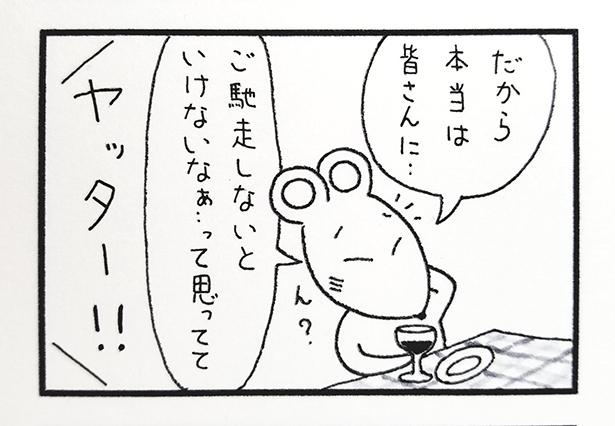 だから
本当は
皆さんに…
ご馳走しないと
いけないなぁ…って思ってて
ん？
ヤッター!!